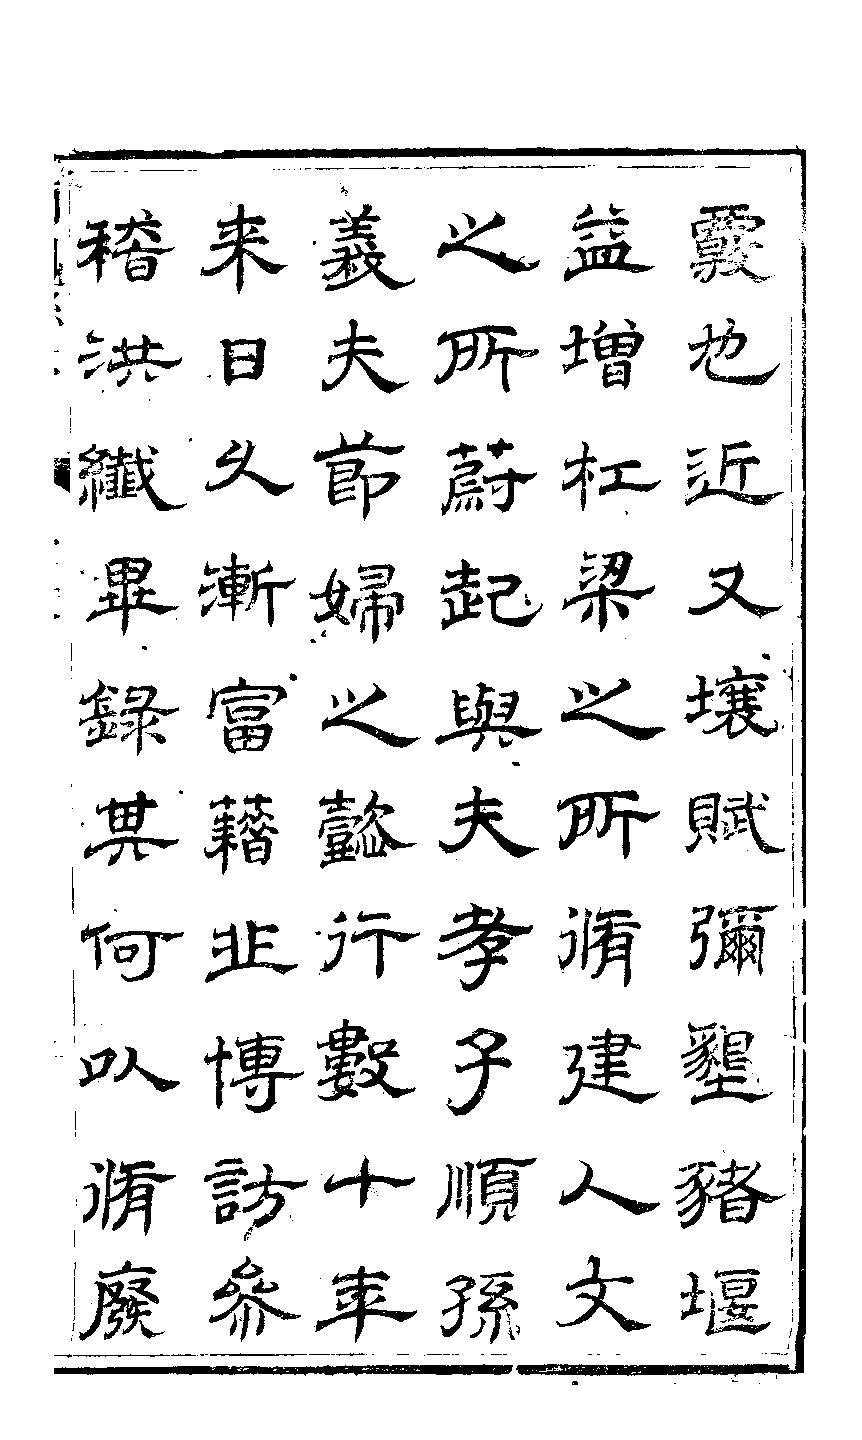 霞也近又壤賦彌墾豬堰
益增杠梁之所脩建人文
之所蔚起與夫孝子順孫
義夫節婦之懿行數十年
来日久漸富藉非博訪參
稽洪纖畢錄其何以脩廢